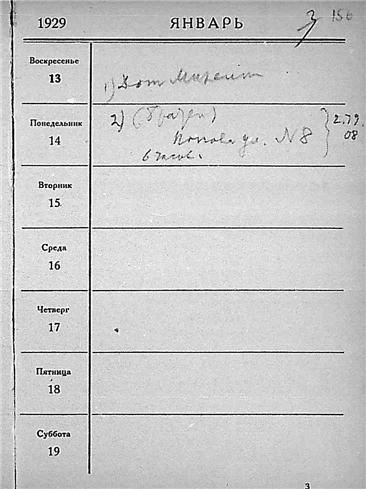 1929 ЯНВАРЬ 3 156
Воскресенье
13
1)
Понедельник
14
2)
ул. N 8
6 часов.
2.79.
08
Вторник
15
Среда
16
Четверг
17
Пятница
18
Суббота
19
3